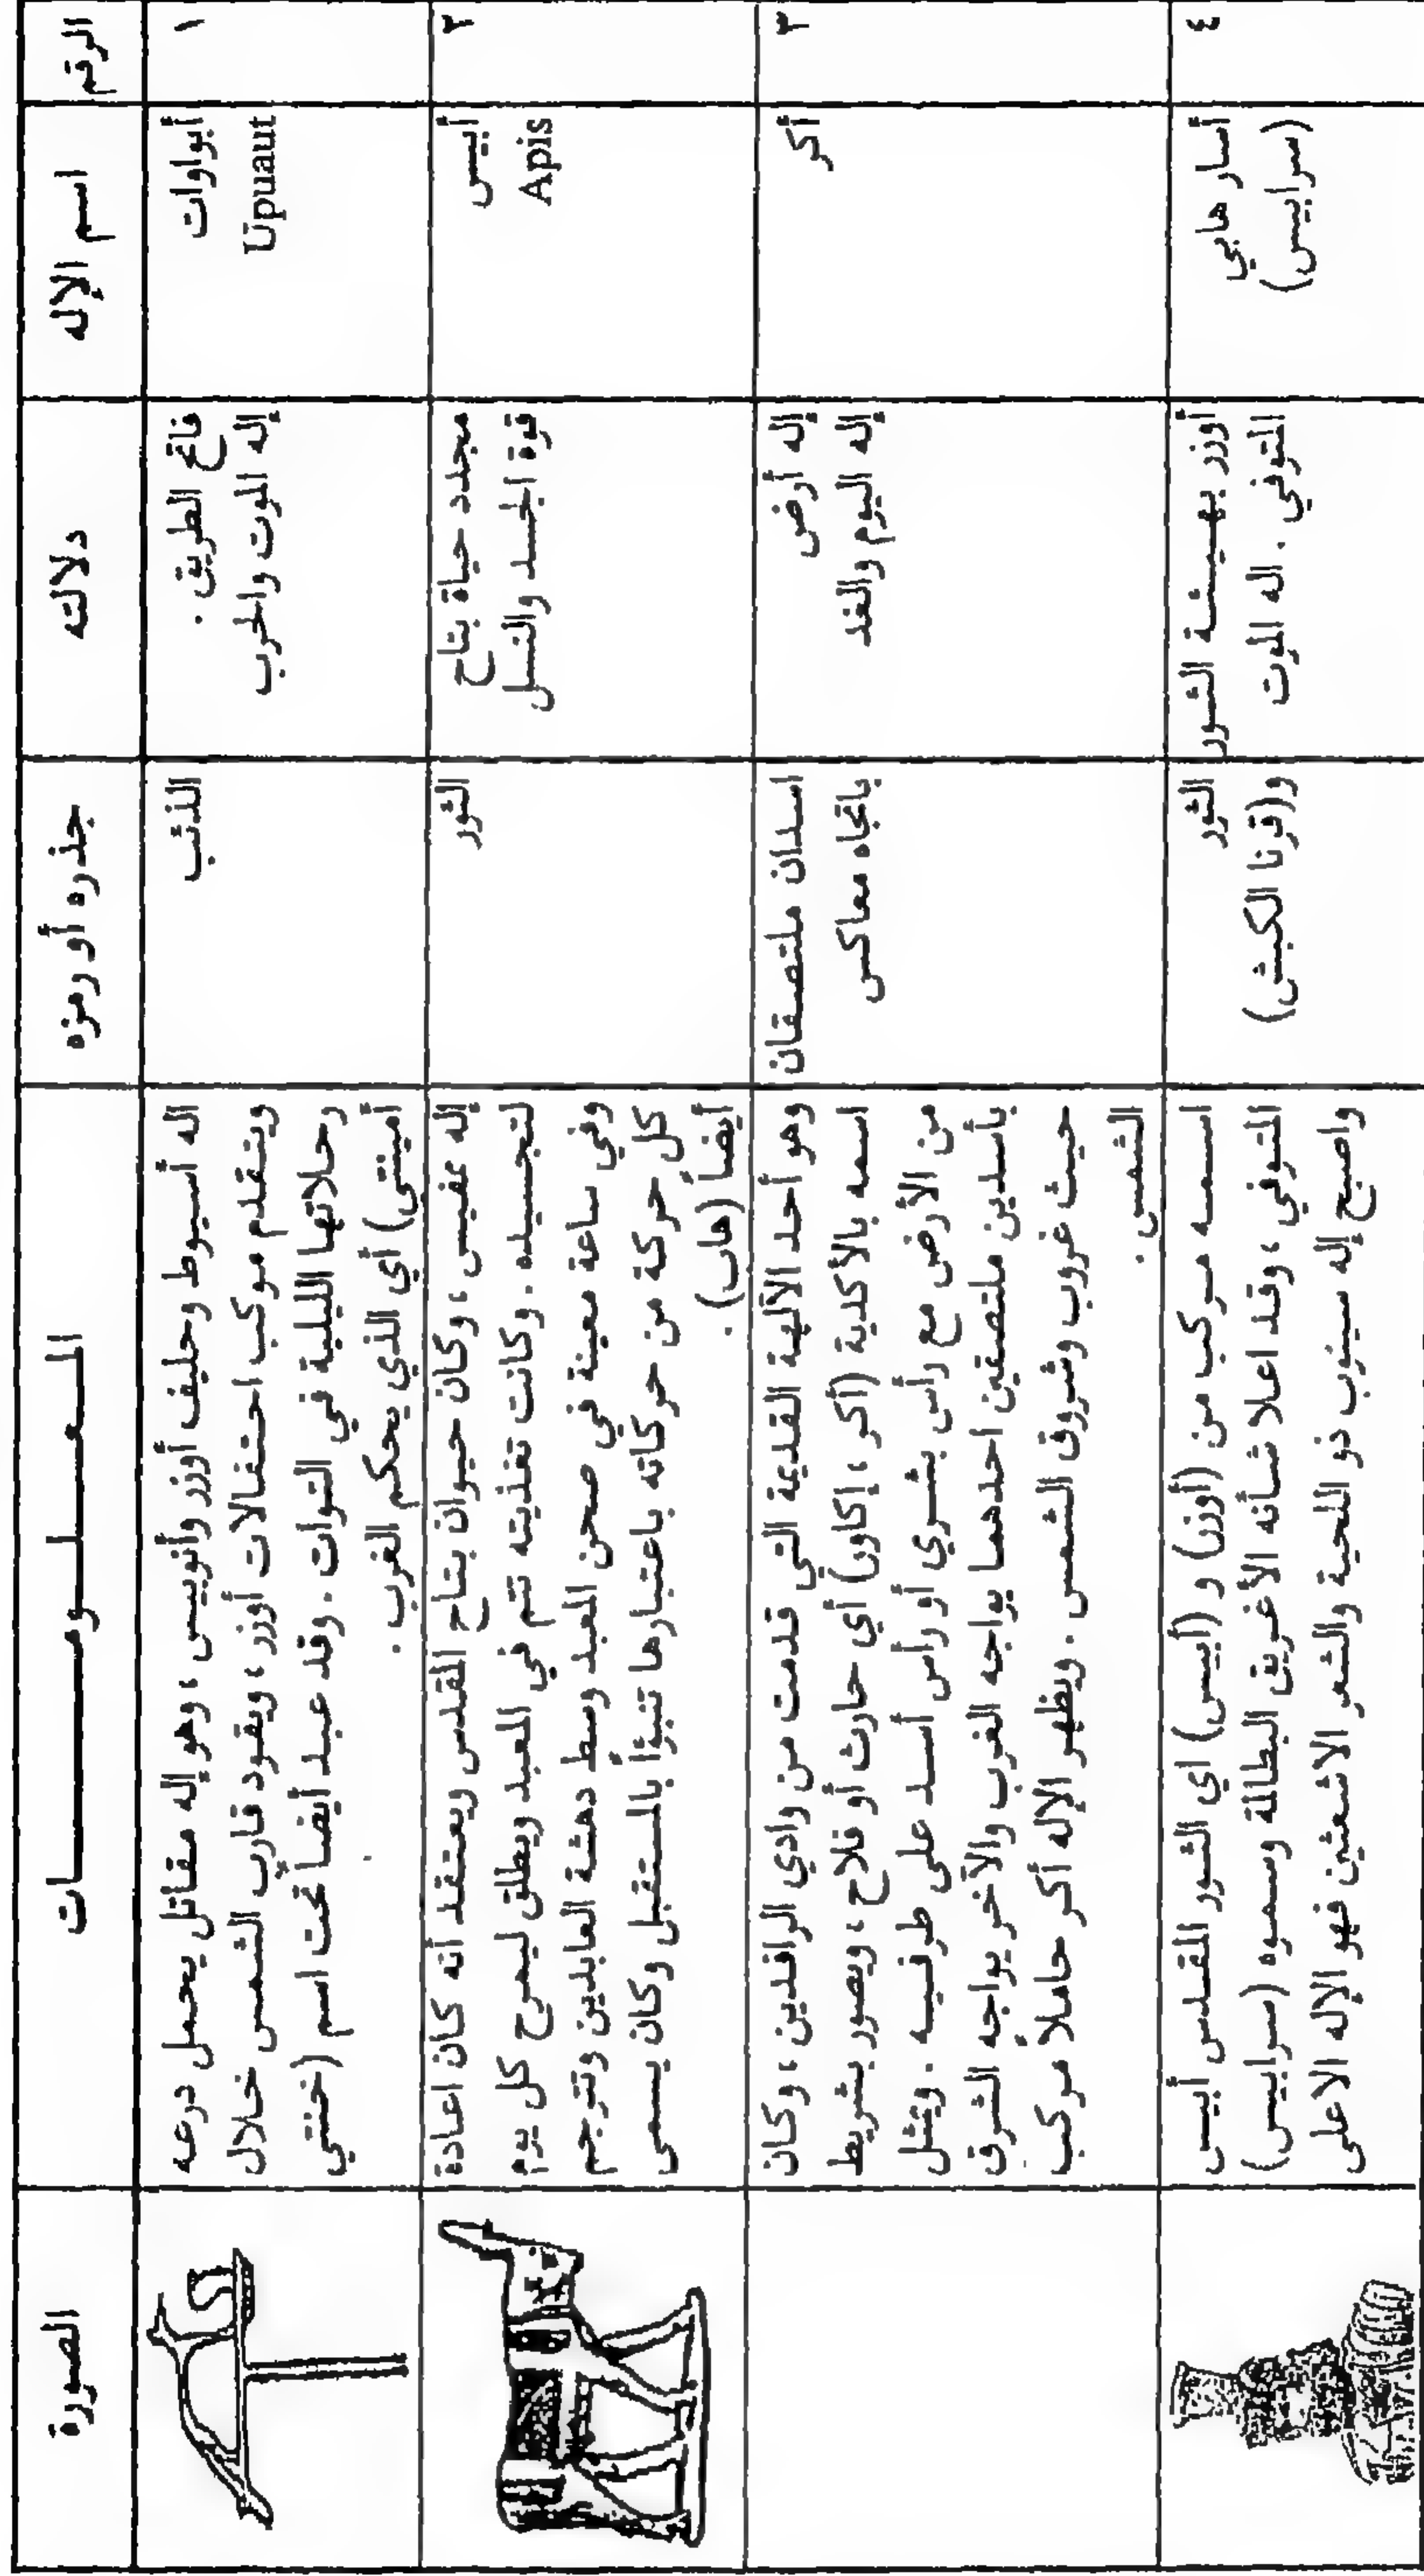 الرقم
اسم الإله
دلالته
جذره أو رمزه
المعلومات
الصورة
١
أبواوات
Upuaut
فاتح الطريق.
إله الموت والحرب
الذئب
اله أسيوط وحليف أوزر وأنوبيس، وهو إله مقاتل يحمل درعه
ويتقدم موكب احتفالات أوزر، ويقود قارب الشمس خلال
رحلاتها الليلية في التوات. وقد عبد أيضاً تحت اسم (خنتي
أمينتى) أي الذي يحكم الغرب.
٢
أبيس
Apis
مجدد حياة بتاح
قوة الجسد والنسل
الثور
إله ممفيس، وكان حيوان بتاح المقدس ويعتقد أنه كان اعادة
لتجسيده. وكانت تغذيته تتم في المعبد ويطلق ليمرح كل يوم
وفي ساعة معينة في صحن المعبد وسط دهشة العابدين وتترجم
كل حركة من حركاته باعتبارها تنبؤاً بالمستقبل وكان يسمى
أيضاً (هاب).
٣
أكر
إله أرض
إله اليوم والغد
اسدان ملتصقان
باتجاه معاكس
وهو أحد الآلهة القديمة التي قدمت من وادي الرافدين، وكان
اسمه بالأكدية (أكر، إكاور) أي حارث أو فلاح، ويصور بشريط
من الأرض مع رأس بشري أو رأس أسد على طرفيه. ويمثل
بأسدين ملتصقين احدهما يواجه الغرب والآخر يواجه الشرق
حيث غروب وشروق الشمس. ويظهر الإله أكر حاملاً مركب
الشمس.
٤
أسار هابي
(سرابيس)
أوزر بهيئة الثور
المتوفي. اله الموت
الثور
و(قرنا الكبش)
اسمه مركب من (أوزر) و (أبيس) اي الثور المقدس أبيس
المتوفي، وقد اعلا شأنه الأغريق البطالمة وسموه (سرابيس)
واصبح إله سينوب ذو اللحية والشعر الاشعثين فهو الإله الاعلى